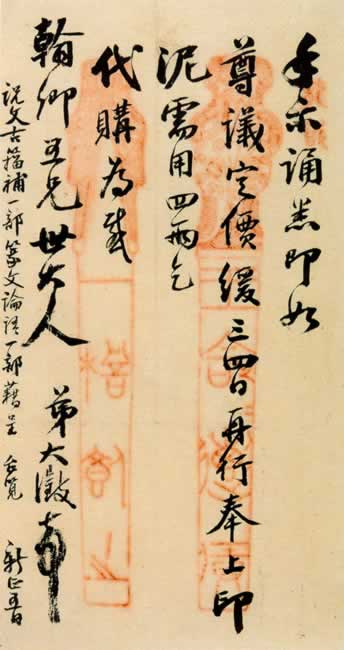 手示誦悉即如
尊議定價緩三四日再行奉上印
泥需用四兩乞
代購為感
翰卿五兄世大人 弟大澂
說文古籀補一部篆文論語一部藉呈 台覽 新正